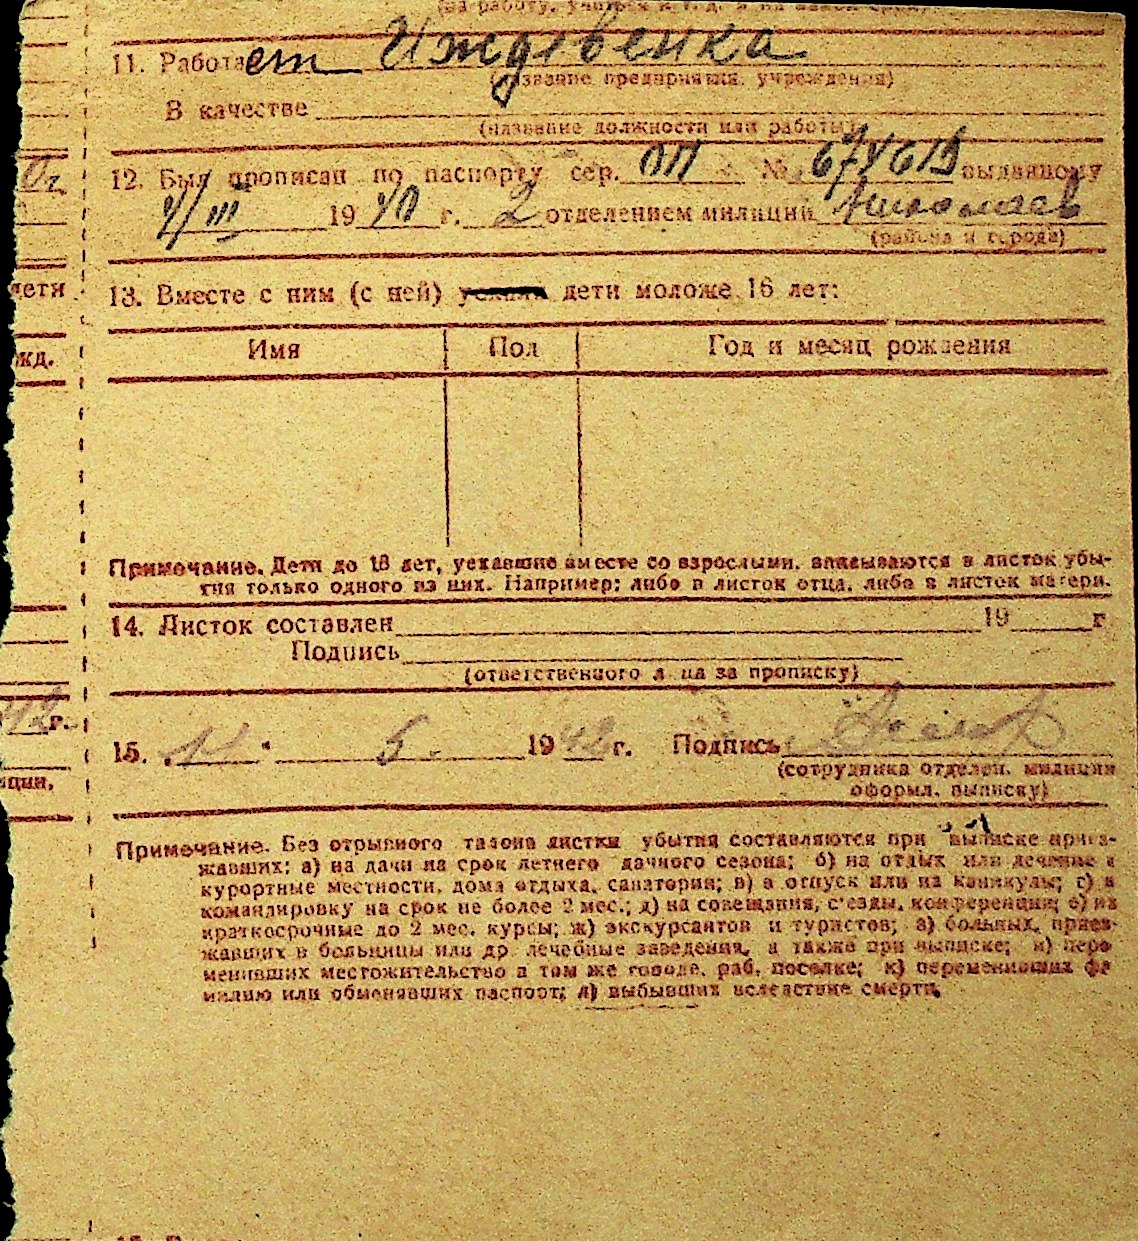 (на работу, учиться и т. д. и на какой срок)
11. Работает Иждивенка
(название предприятия, учреждения)
В качестве
(название должности или работы)
12. Был прописан по паспорту сер. ОП № выданному
4/III 1940 г. 2 отделением милиции Николаев
(района и города)
13. Вместе с ним (с ней) дети моложе 16 лет:
Имя Пол Год и месяц рождения
Примечание. Дети до 16 лет, уехавшие вместе со взрослыми, вписываются в листок убы-
тия только одного из них. Например: либо в листок отца, либо в листок матери.
14. Листок составлен 19 г
Подпись
(ответственного лица за прописку)
15. 5. 1942 г. Подпись
(сотрудника отделен. милиции
оформ. выписку)
Примечание. Без отрывного талона листки убытия составляются при выписке приез-
жавших: а) на дачи на срок летнего дачного сезона; б) на отдых или лечение в
курортные местности, дома отдыха, санатории; в) в отпуск или на каникулы; г) в
командировку на срок не более 2 мес.; д) на совещания, съезды, конференции; е) на
краткосрочные до 2 мес. курсы; ж) экскурсантов и туристов; з) больных, приез-
жавших в больницы или др лечебные заведения, а также при выписке; и) пере
менивших местожительство в том же городе, раб. поселке; к) переменивших фа
милию или обменявших паспорт; л) выбывших вследствие смерти.